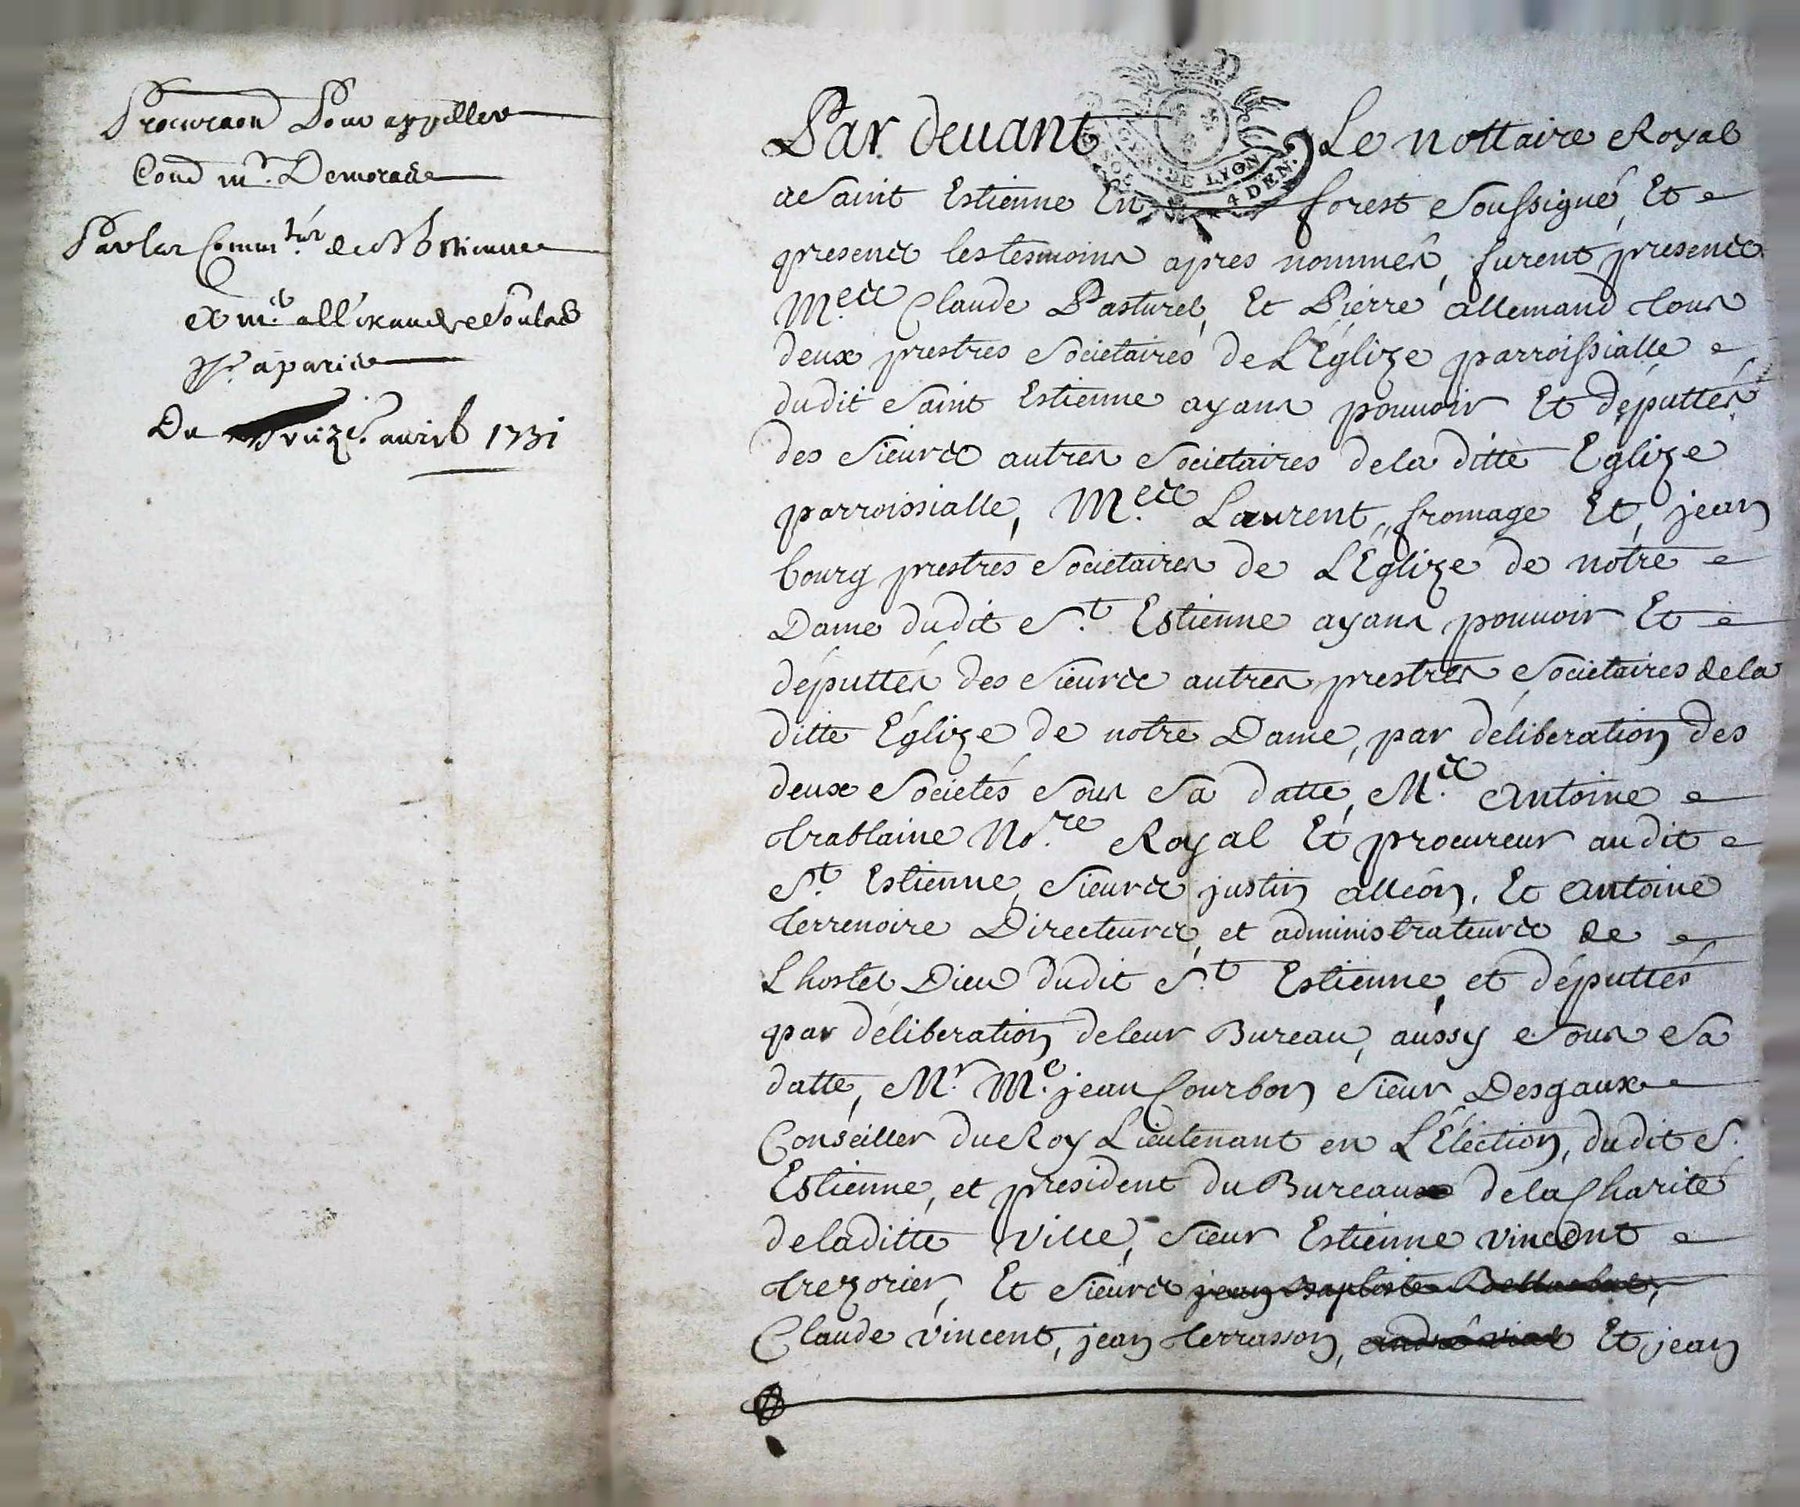 Procuraon Pour appeller
Cond mr. Demorade
Par les Comm.
et me. allexandre Soulas
pr. a paris
Du avril 1731
GEN. DE LYON
SOL 4 DEN.
Par devant Le nottaire Royal
a Saint Estienne En forest Soussigné, Et
presents les tesmoins apres nommés, furent presents
M.es Claude Pasturel, Et Pierre allemand tous
deux prestres Societaires de L'Églize parroissialle
dudit Saint Estienne ayans pouvoir Et députtés
des Sieurs autres Societaires de la ditte Eglize
parroissialle, M.es Laurent fromage Et jean
bourg prestres Societaires de L'Églize de nôtre
Dame dudit S.t Estienne ayans pouvoir Et
députtés des Sieurs autres prestres Societaires de la
ditte Églize de notre Dame, par déliberation des
deux Societés sous sa datte, M.e Antoine
trablaine No.re Royal Et procureur audit
S.t Estienne, Sieurs justin alléon, Et antoine
terrenoire Directeurs, et administrateurs de
L'hostel Dieu dudit S.t Estienne, et députtés
par déliberation de leur Bureau, aussy sous sa
datte, M.r M.e jean Courbon Sieur Desgaux
Conseiller du Roy Lieutenant en L'Élection, dudit S.
Estienne, et president du Bureau de la Charité
de la ditte ville, Sieur Estienne vincent
trezorier, Et Sieurs jean Baptiste
Claude vincent, jean terrasson, andré vial Et jean